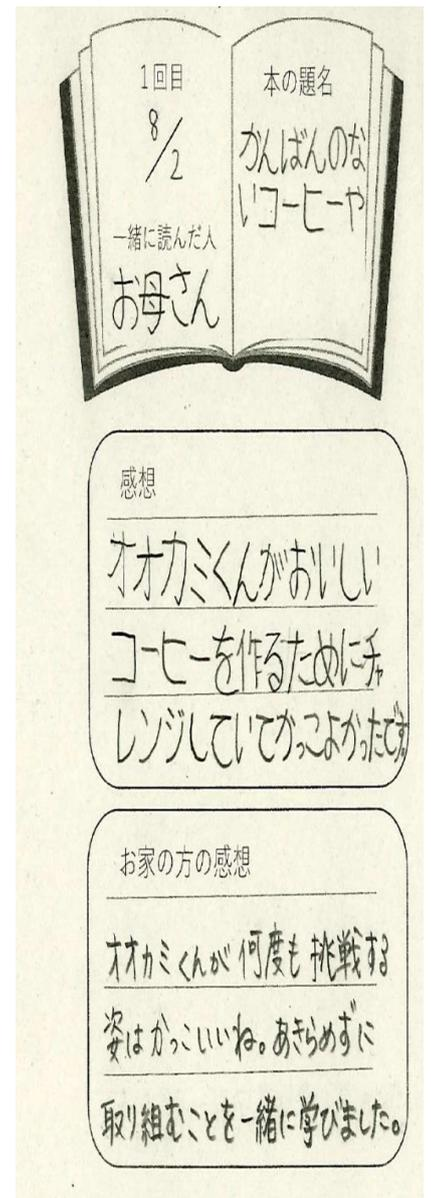 1回目
8/2
一緒に読んだ人
お母さん
本の題名
かんばんのな
いコーヒーや
感想
オオカミくんがおいしい
コーヒーを作るためにチャ
レンジしていてかっこよかったです。
お家の方の感想
オオカミくんが何度も挑戦する
姿はかっこいいね。あきらめずに
取り組むことを一緒に学びました。